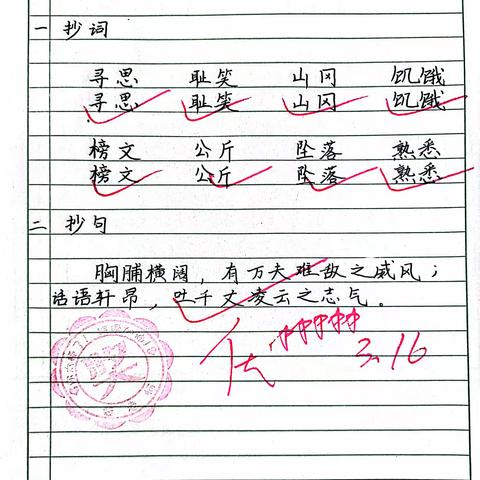 一 抄词
寻思 耻笑 山冈 饥饿
寻思 耻笑 山冈 饥饿
榜文 公斤 坠落 熟悉
榜文 公斤 坠落 熟悉
二 抄句
胸脯横阔，有万夫难敌之威风；
话语轩昂，吐千丈凌云之志气。
优
3.16